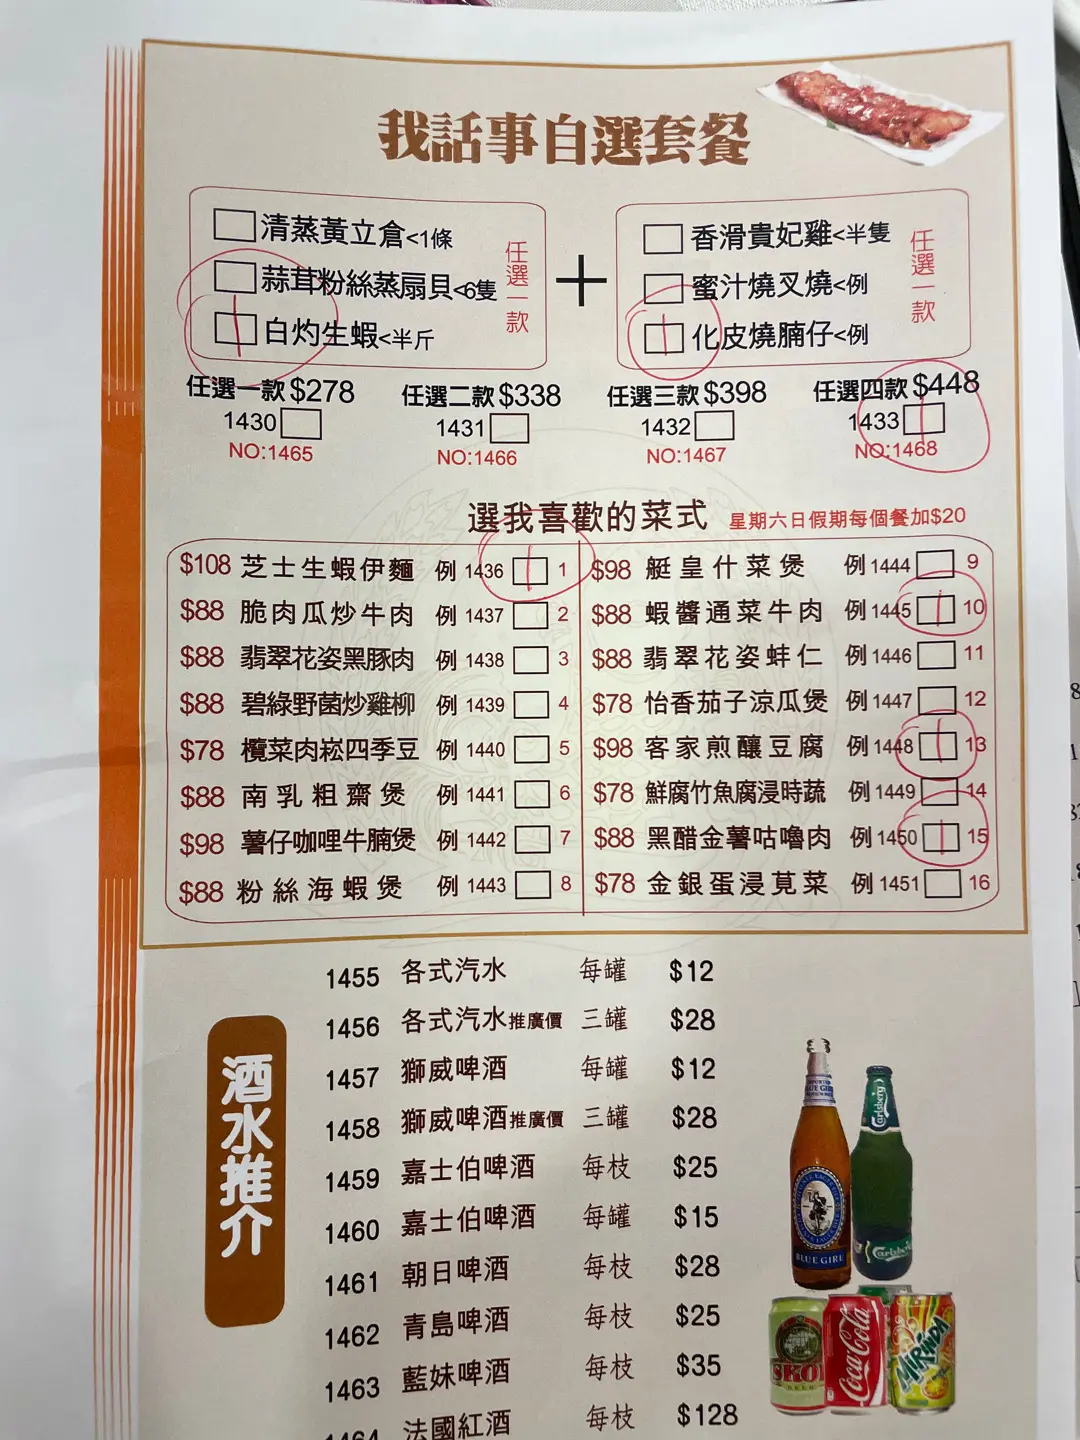 我話事自選套餐
清蒸黃立倉<1條
蒜茸粉絲蒸扇貝<6隻
白灼生蝦<半斤
任選一款
+
香滑貴妃雞<半隻
蜜汁燒叉燒<例
化皮燒腩仔<例
任選一款
任選一款$278 任選二款$338 任選三款$398 任選四款$448
1430 1431 1432 1433
NO:1465 NO:1466 NO:1467 NO:1468
選我喜歡的菜式 星期六日假期每個餐加$20
$108 芝士生蝦伊麵 例 1436 1
$88 脆肉瓜炒牛肉 例 1437 2
$88 翡翠花姿黑豚肉 例 1438 3
$88 碧綠野菌炒雞柳 例 1439 4
$78 欖菜肉崧四季豆 例 1440 5
$88 南乳粗齋煲 例 1441 6
$98 薯仔咖哩牛腩煲 例 1442 7
$88 粉絲海蝦煲 例 1443 8
$98 艇皇什菜煲 例 1444 9
$88 蝦醬通菜牛肉 例 1445 10
$88 翡翠花姿蚌仁 例 1446 11
$78 怡香茄子涼瓜煲 例 1447 12
$98 客家煎釀豆腐 例 1448 13
$78 鮮腐竹魚腐浸時蔬 例 1449 14
$88 黑醋金薯咕嚕肉 例 1450 15
$78 金銀蛋浸莧菜 例 1451 16
酒水推介
1455 各式汽水 每罐 $12
1456 各式汽水推廣價 三罐 $28
1457 獅威啤酒 每罐 $12
1458 獅威啤酒推廣價 三罐 $28
1459 嘉士伯啤酒 每枝 $25
1460 嘉士伯啤酒 每罐 $15
1461 朝日啤酒 每枝 $28
1462 青島啤酒 每枝 $25
1463 藍妹啤酒 每枝 $35
1464 法國紅酒 每枝 $128
BLUE GIRL
Carlsberg
Carlsberg
SKOL
Coca-Cola
MIRINDA